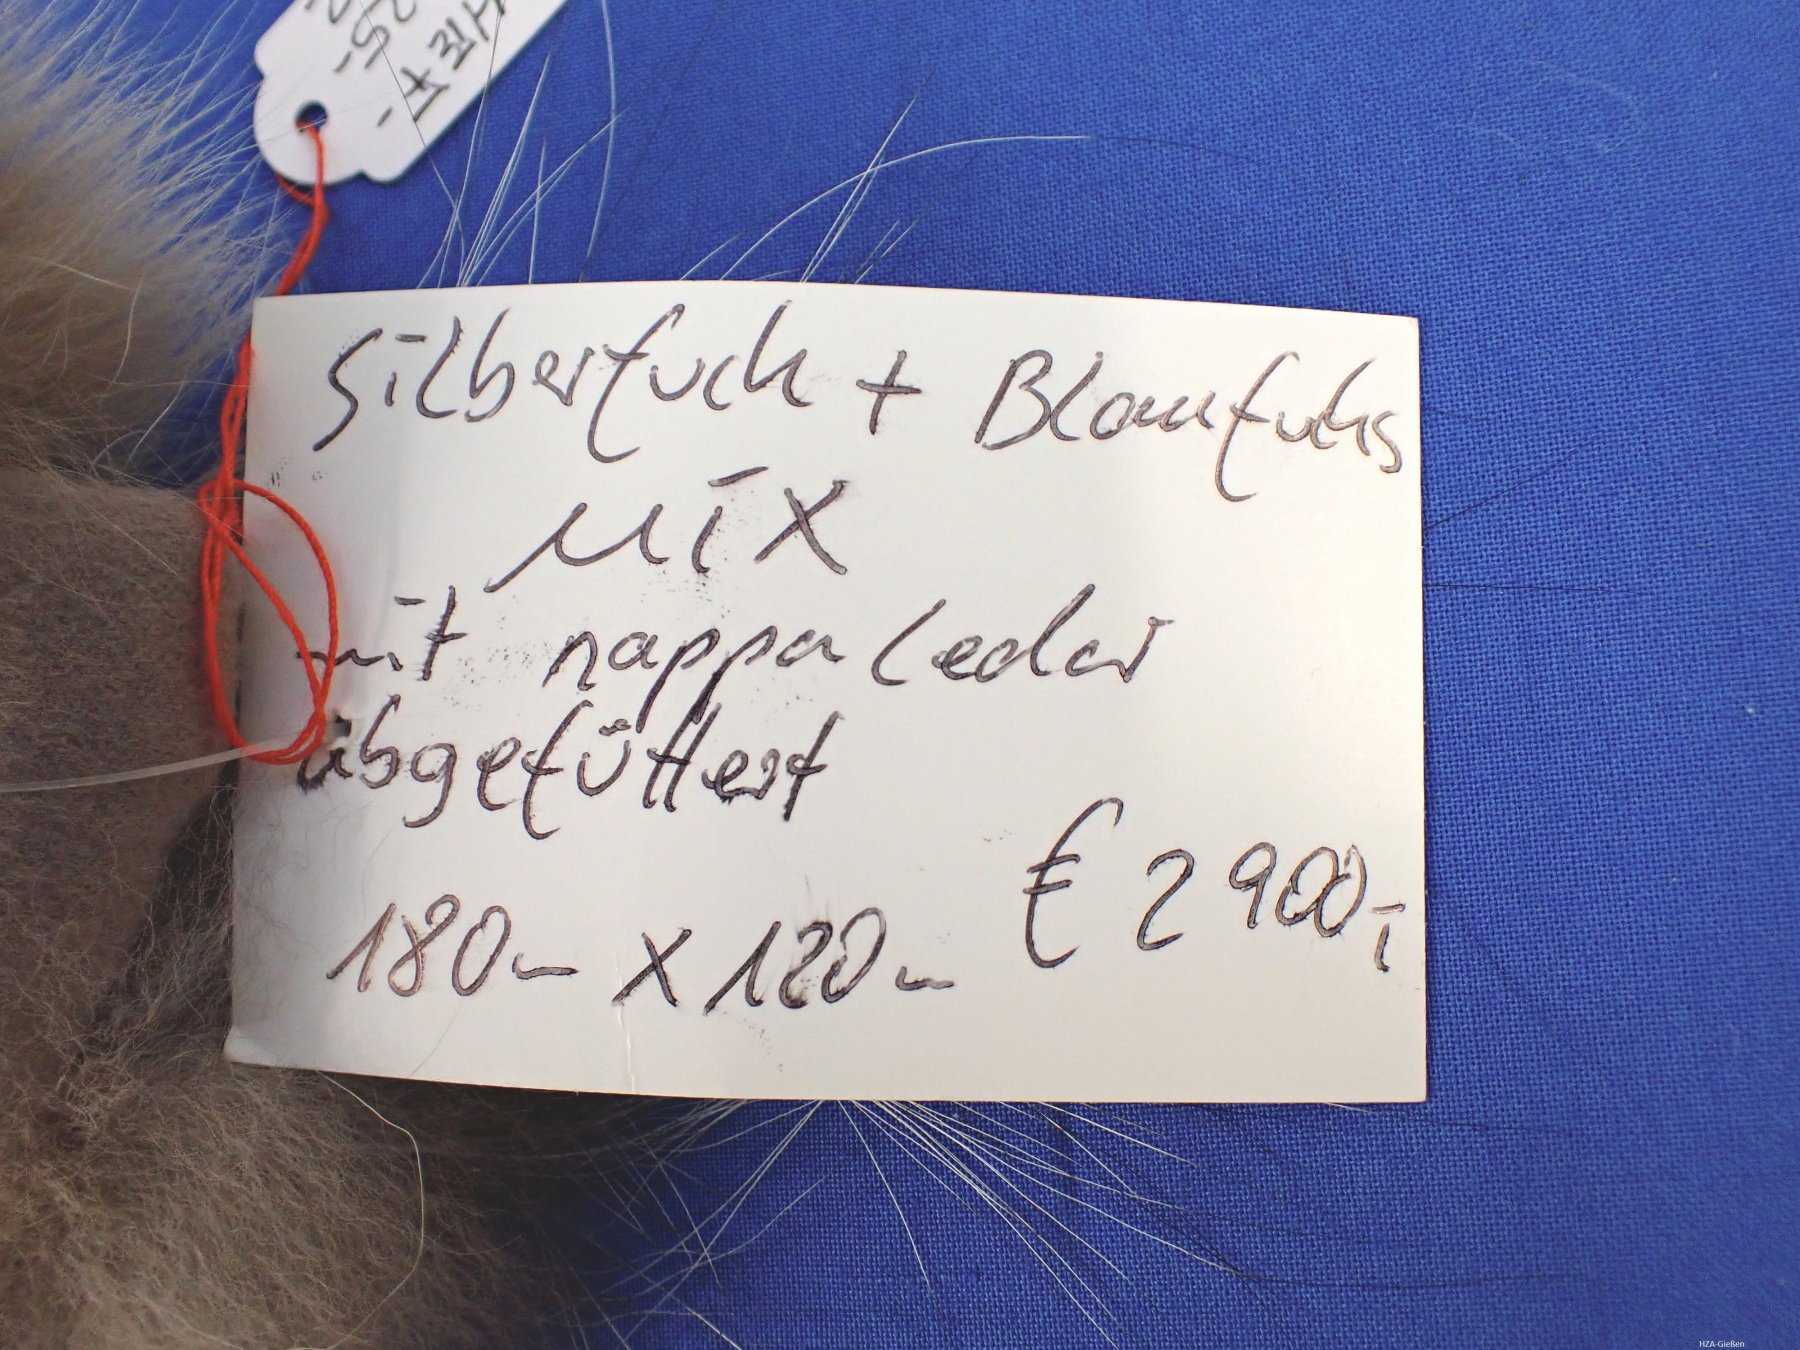 Silberfuch + Blaufuchs
Mix
mit nappa Leder
abgefüttert
€ 2900,-
180m x 120m
HZA-Gießen